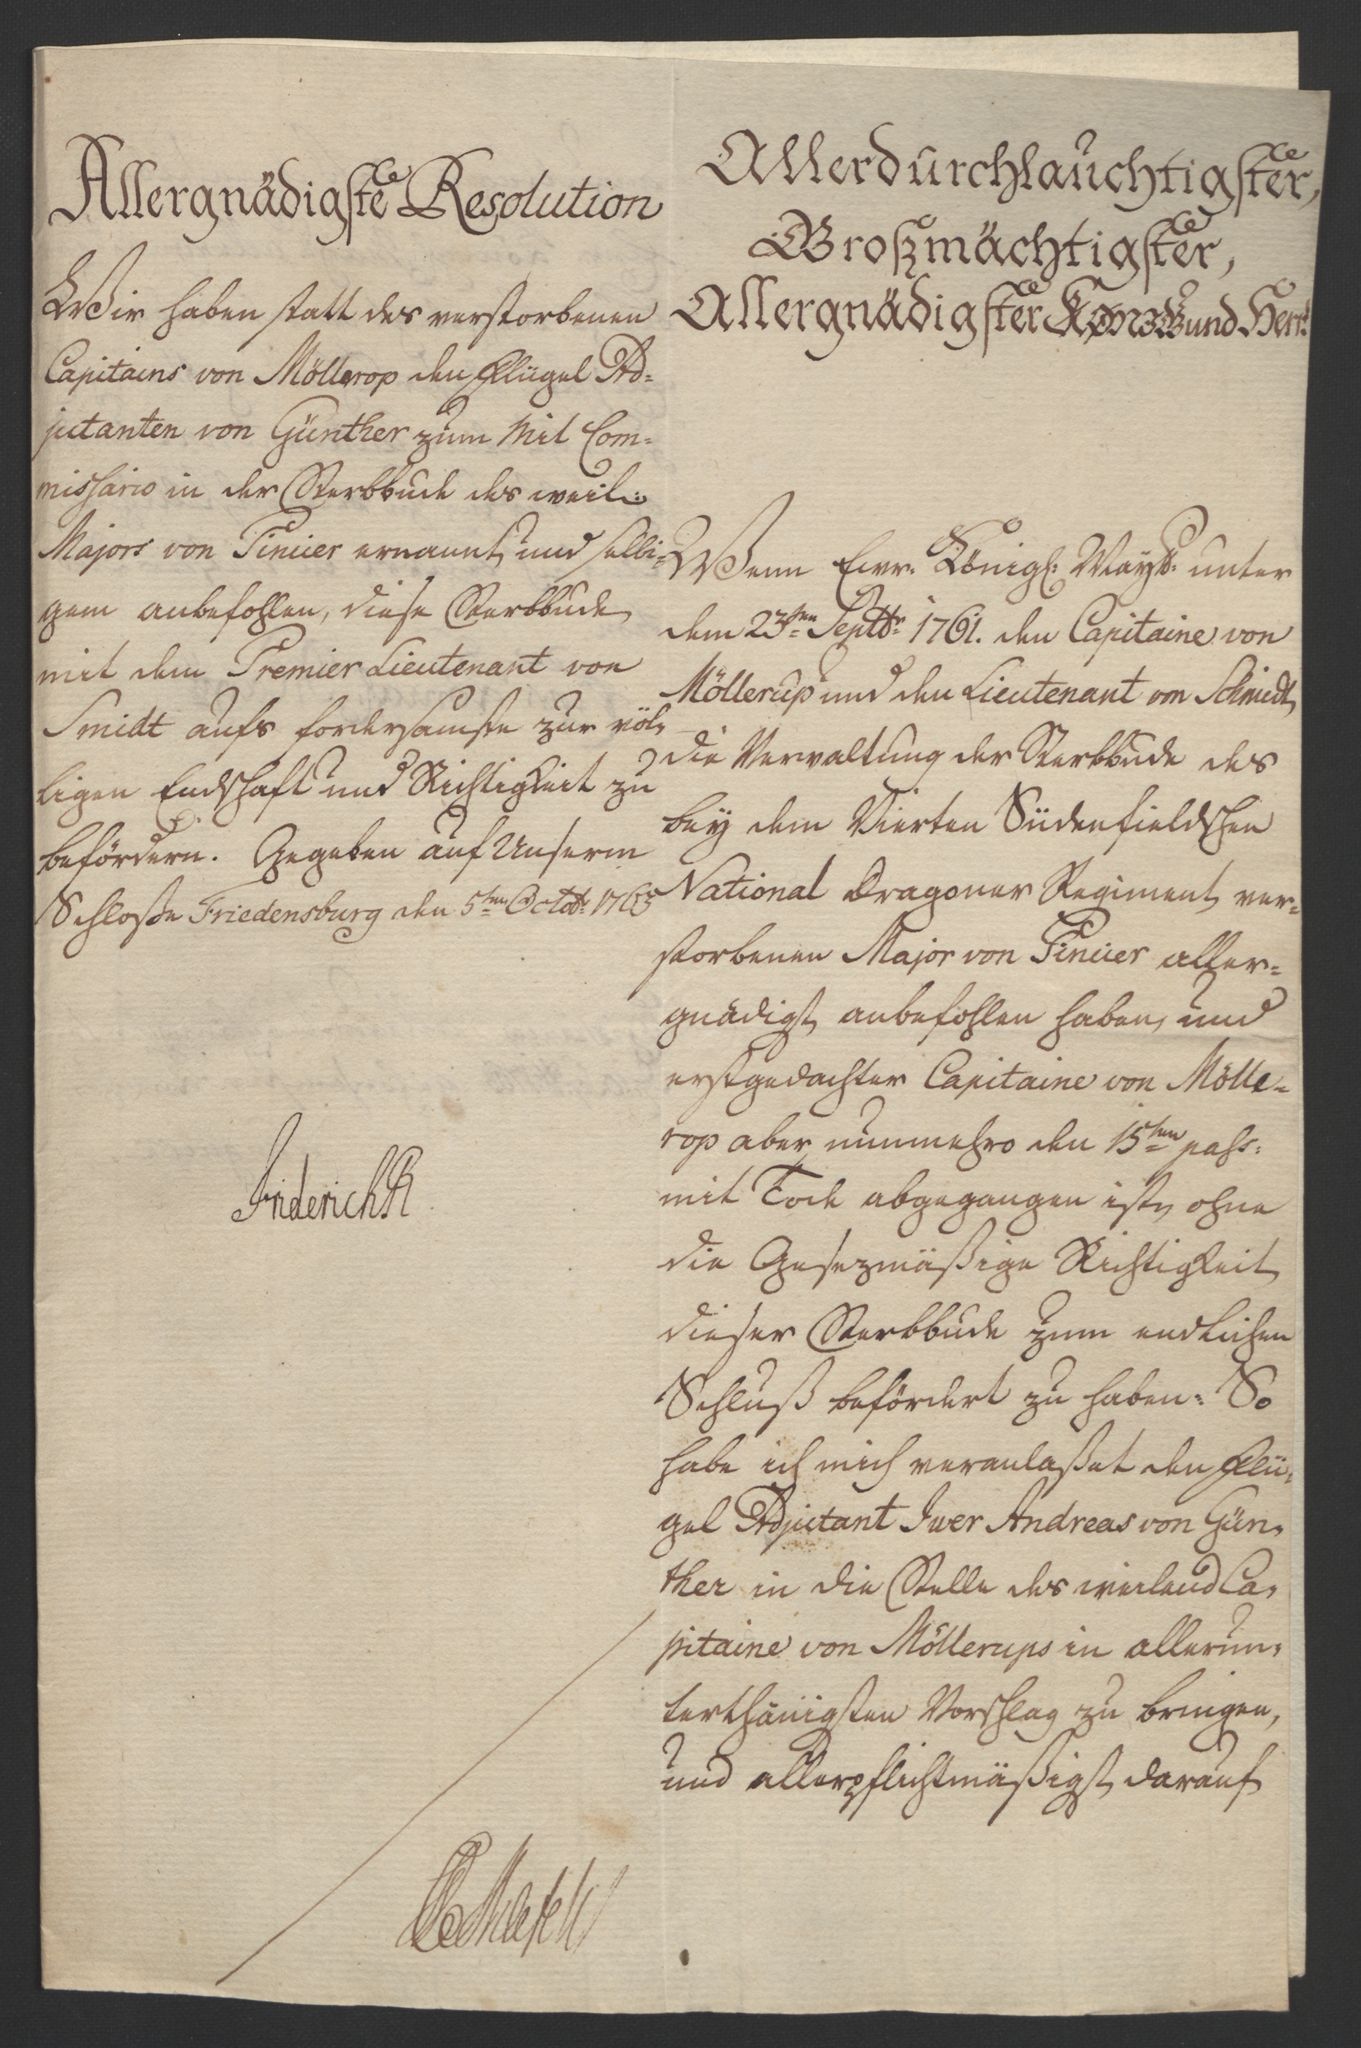 Allergnädigste Resolution
Wir haben statt des verstorbenen
Capitains von Möllerop den Flügel Ad-
jutanten von Günther zum Mit Com-
missario in der Sterbbude des weil:
Majors von Pincier ernannt, und selbi-
gem anbefohlen, diese Sterbbude
mit dem Premier Lieutenant von
Smidt aufs fordersamste zur völ-
ligen Endschaft und Richtigkeit zu
befördern. Gegeben auf Unserm
Schloße Friedensburg den 5ten Octobr: 1763
Friderich R
Allerdurchlauchtigster,
Großmächtigster,
Allergnädigster König und Herr!
Wenn Ewr. Königl: Maytt: unter
dem 23ten Septbr: 1761. den Capitaine von
Möllerup und den Lieutenant von Schmidt,
die Verwaltung der Sterbbude des
bey dem Vierten Südenfieldschen
National Dragoner Regiment, ver-
storbenen Major von Pincier aller-
gnädigst, anbefohlen haben, und
erstgedachter Capitaine von Mölle-
rop aber, nunmehro den 15ten pass:
mit Tode abgegangen ist, ohne
die Gesezmäßige Richtigkeit,
dieser Sterbbude zum endlichen
Schluß befördert zu haben: So
habe ich mich veranlaßet den Flü-
gel Adjutant Iver Andreas von Gün-
ther in die Stelle des weiland Ca-
pitaine von Möllerups in allerun-
terthänigsten Vorschlag zu bringen,
und allerpflichtmäßigst, darauf